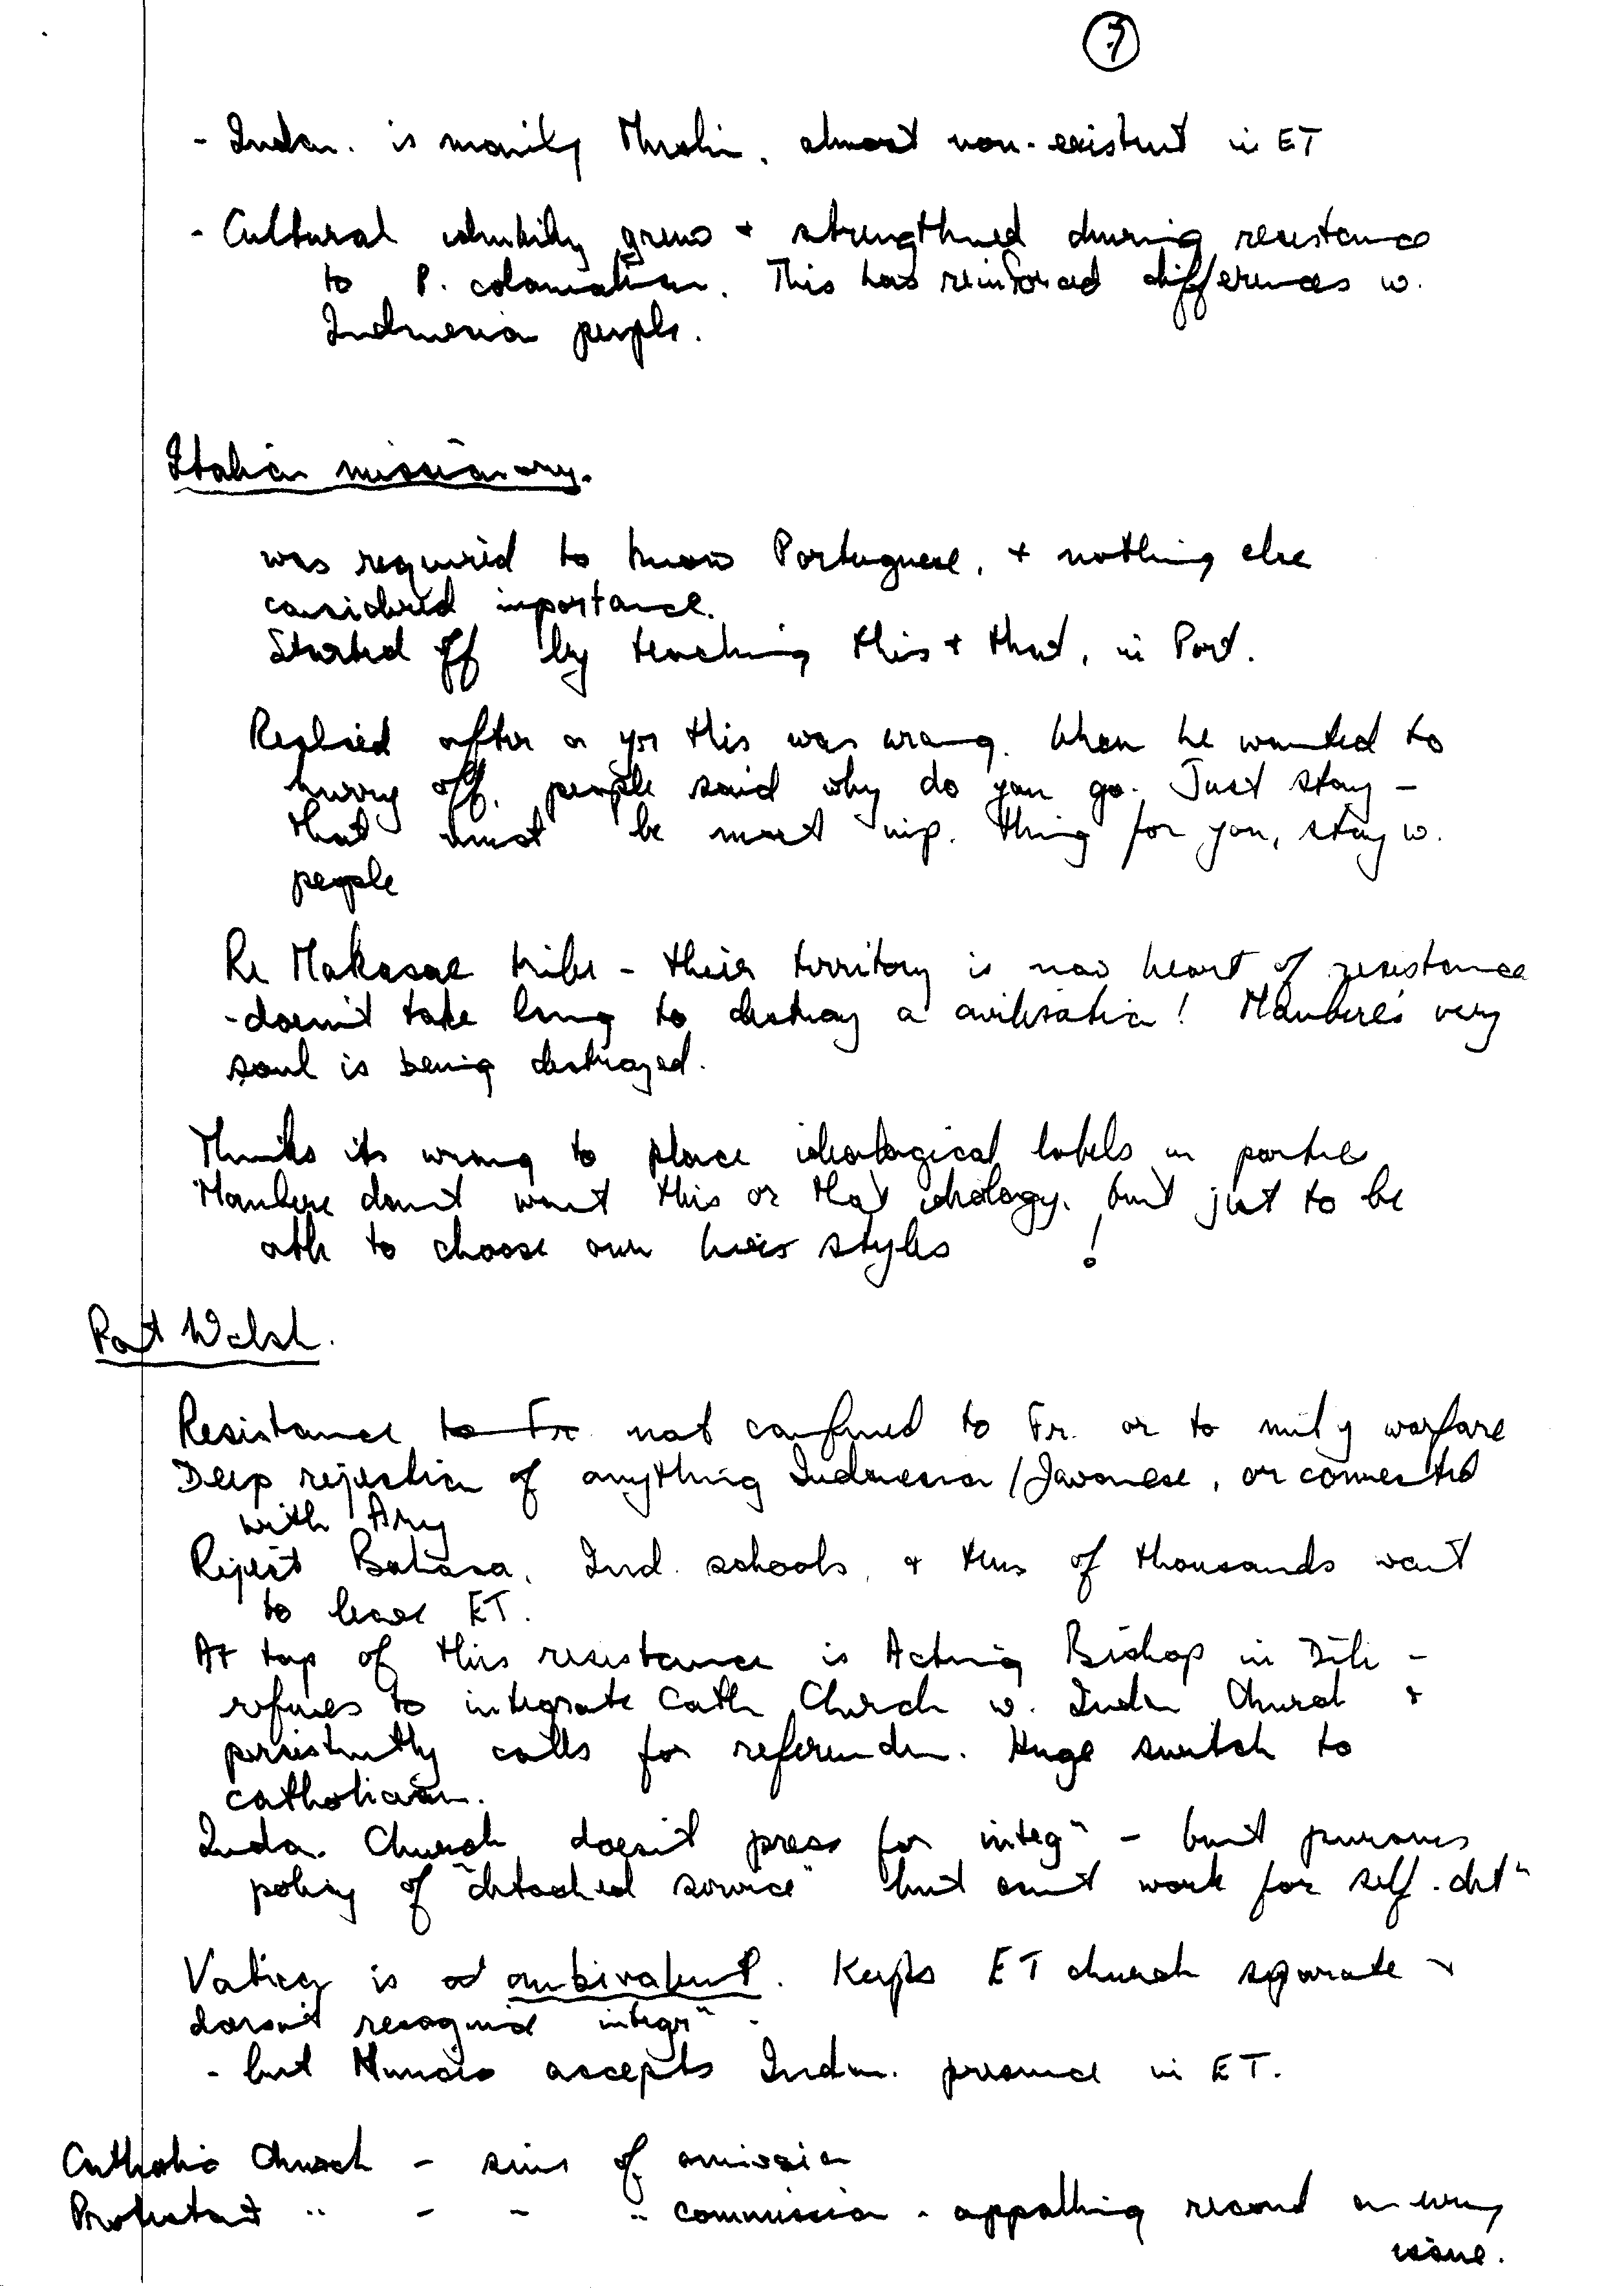 7
- Indon. is mainly Muslim, almost non-existent in ET
- Cultural identity grew + strengthened during resistance
to P. colonialism. This has reinforced differences w.
Indonesia people.
Italian missionary.
was required to know Portuguese, + nothing else
considered importance.
Started off by teaching this + that, in Port.
Realised after a yr this was wrong. When he wanted to
hurry off, people said why do you go. Just stay -
that must be most imp. thing for you, stay w.
people
Re Makasae tribe - their territory is now heart of resistance
- doesn't take long to destroy a civilisation! Maubere's very
soul is being destroyed.
Thinks its wrong to place ideological labels on parties
Maubere don't want this or that ideology, but just to be
able to choose own lives styles !
Pat Walsh.
Resistance to Fr. not confined to Fr. or to mil'y warfare
Deep rejection of anything Indonesian / Javanese, or connected
with Army
Reject Bahasa, Ind. schools, + tens of thousands want
to leave ET.
At top of this resistance is Acting Bishop in Dili -
refuses to integrate Cath Church w. Indon Church +
persistently calls for referendum. Huge switch to
catholicism.
Indon. Church doesn't press for integⁿ - but pursues
policy of "detached service" but won't work for self-detⁿ
Vatican is ambivalent. Keeps ET church separate +
doesn't recognise integrⁿ.
- but Nuncio accepts Indon. presence in ET.
Catholic Church - sins of omission
Protestant " - - " commission - appalling record on every
issue.